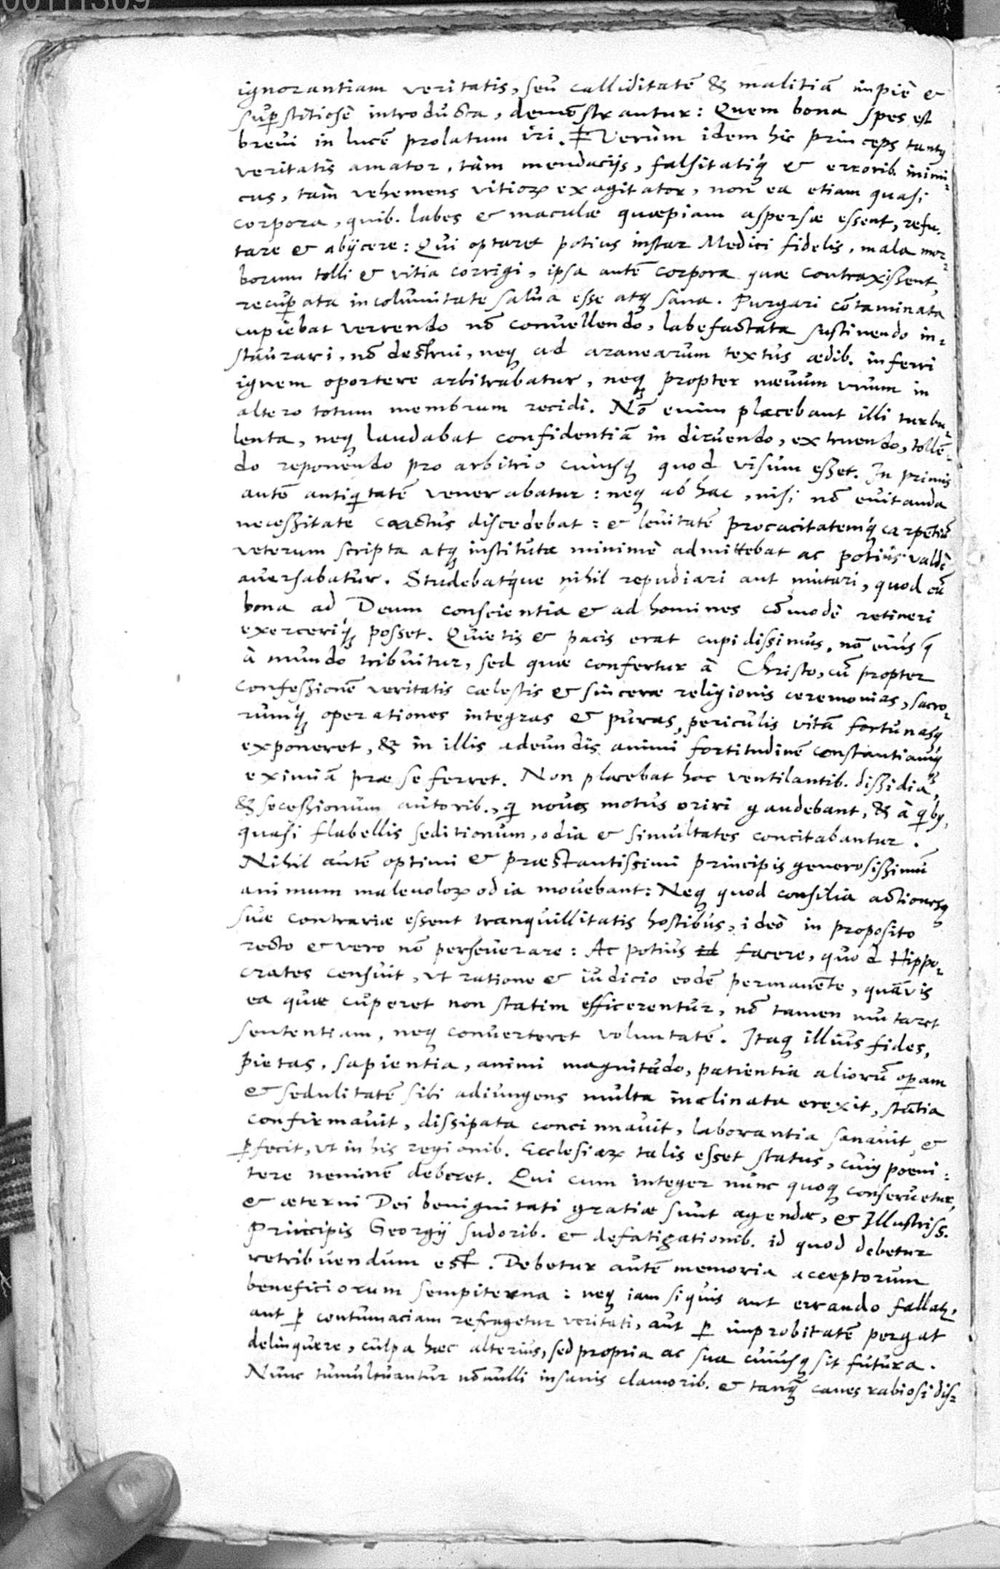 00111309
ignorantiam veritatis, seu calliditatē & malitiā impiè &
suꝑstitiosè introducta, demonstrantur: Quem bona spes est
brevi in lucē prolatum iri. Verùm idem hic princeps tantꝯ
veritatis amator, tàm mendacijs, falsitatiq́; & errorib. inimi-
cus, tàm vehemens vitioꝝ exagitator, non ea etiam quasi
corpora, quib. labes & maculæ quæpiam aspersæ essent, refu-
tare & abijcere: Qui optaret potius instar Medici fidelis, mala mor-
borum tolli & vitia corrigi, ipsa autē corpora quæ contraxissent,
recuꝑata incolumitate salua esse atq; sana. Purgari cōtaminata
cupiebat verrendo nō conuellendo, labefactata sustinendo in-
staurari, nō destrui, neq; ad aranearum textus ædib. inferri
ignem oportere arbitrabatur, neq; propter næuum unum in
altero totum membrum recidi. Nō enim placebant illi turbu-
lenta, neq; laudabat confidentiā in diruendo, extruendo, tollē-
do reponendo pro arbitrio cuiusq; quod visum esset. In primis
autē antiq̃tatē venerabatur: neq; ab hac, nisi nō euitanda
necessitate coactus discedebat: & leuitatē procacitatemq́; carpētiū
veterum scripta atq; instituta minimè admittebat ac potius valdè
auersabatur. Studebatque nihil repudiari aut mutari, quod cū
bona ad Deum conscientia & ad homines cōmodè retineri
exerceriq́; posset. Quietis & pacis erat cupidissimus, nō eius q̃
à mundo tribuitur, sed quæ confertur à Christo, cū propter
confessionē veritatis cælestis & sinceræ religionis ceremonias, sacro-
rumq́; operationes integras & puras, periculis vitā fortunasq;
exponeret, & in illis adeundis animi fortitudinē constantiamq́;
eximiā præ se ferret. Non placebat hoc ventilantib. dissidia,
& secessionum autorib., q̃ nouos motus oriri gaudebant, & à q̃by,
quasi flabellis seditionum, odia & simultates concitabantur.
Nihil autē optimi & præstantissimi principis generosissimū
animum maleuoloꝝ odia mouebant: Neq; quod consilia actionesq;
suæ contrariæ essent tranquillitatis hostibus, ideò in proposito
recto & vero nō perseuerare: Ac potius facere, quod Hippo-
crates censuit, vt ratione & iudicio eodē permanente, quāvis
ea quæ cuperet non statim efficerentur, nō tamen mutaret
sententiam, neq; conuerteret voluntatē. Itaq; illius fides,
pietas, sapientia, animi magnitudo, patientia alioru᷈ oꝑam
& sedulitatē sibi adiungens multa inclinata erexit, stātia
confirmauit, dissipata concinnauit, laborantia sanauit &
ꝑfecit, vt in his regionib. Ecclesiaꝝ talis esset status, cuiꝯ pœni-
tere neminē deberet. Qui cum integer nunc quoq; conseruetur,
& æterni Dei benignitati gratiæ sunt agendæ, & Illustriss.
Principis Georgij sudorib. & defatigationib. id quod debetur
retribuendum est. Debetur autē memoria acceptorum
beneficiorum sempiterna: neq; iam si quis aut errando fallatꝛ,
aut ꝑ contumaciam refragetur veritati, aut ꝑ improbitatē pergat
delinquere, culpa hæc alterius, sed propria ac sua cuiusq; sit futura.
Nunc tumultuantur nōnulli insanis clamorib. & tanq̃ canes rabiosi dis-